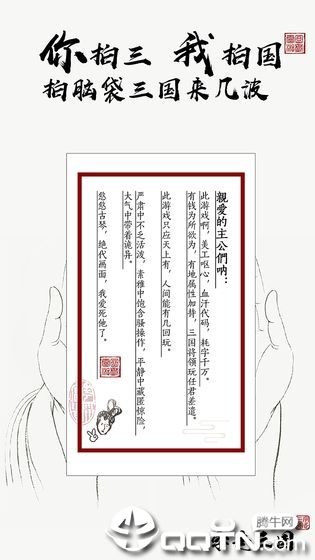 你拍三 我拍国
拍脑袋三国来几波
親愛的主公們呐：
此游戏啊，美工呕心，血汗代码，耗字千万。
有钱为所欲为，有地属性加持，三国将领玩任君差遣。
此游戏只应天上有，人间能有几回玩。
严肃中不乏活泼，素雅中饱含骚操作，平静中藏匿惊险，
大气中带着诡异。
悠悠古琴，绝代画面，我爱死他了。
腾牛网
三国